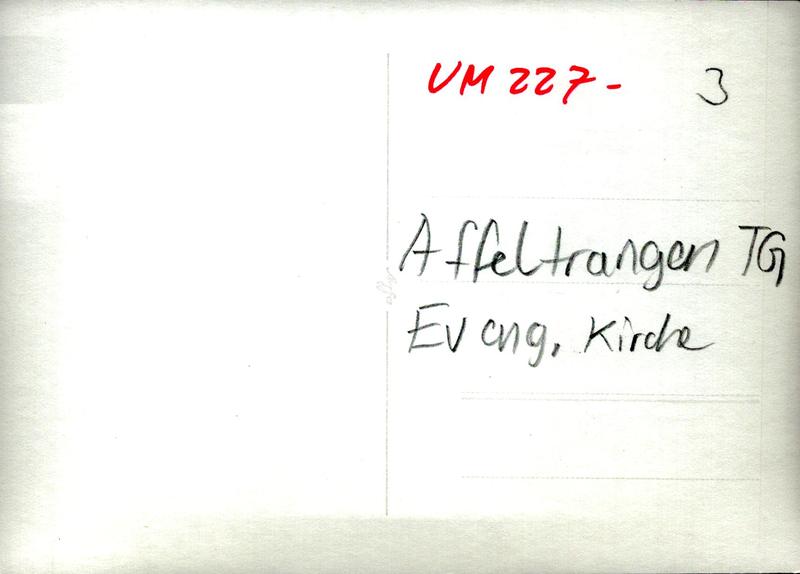 UM 227- 3
Affeltrangen TG
Evang. Kirche